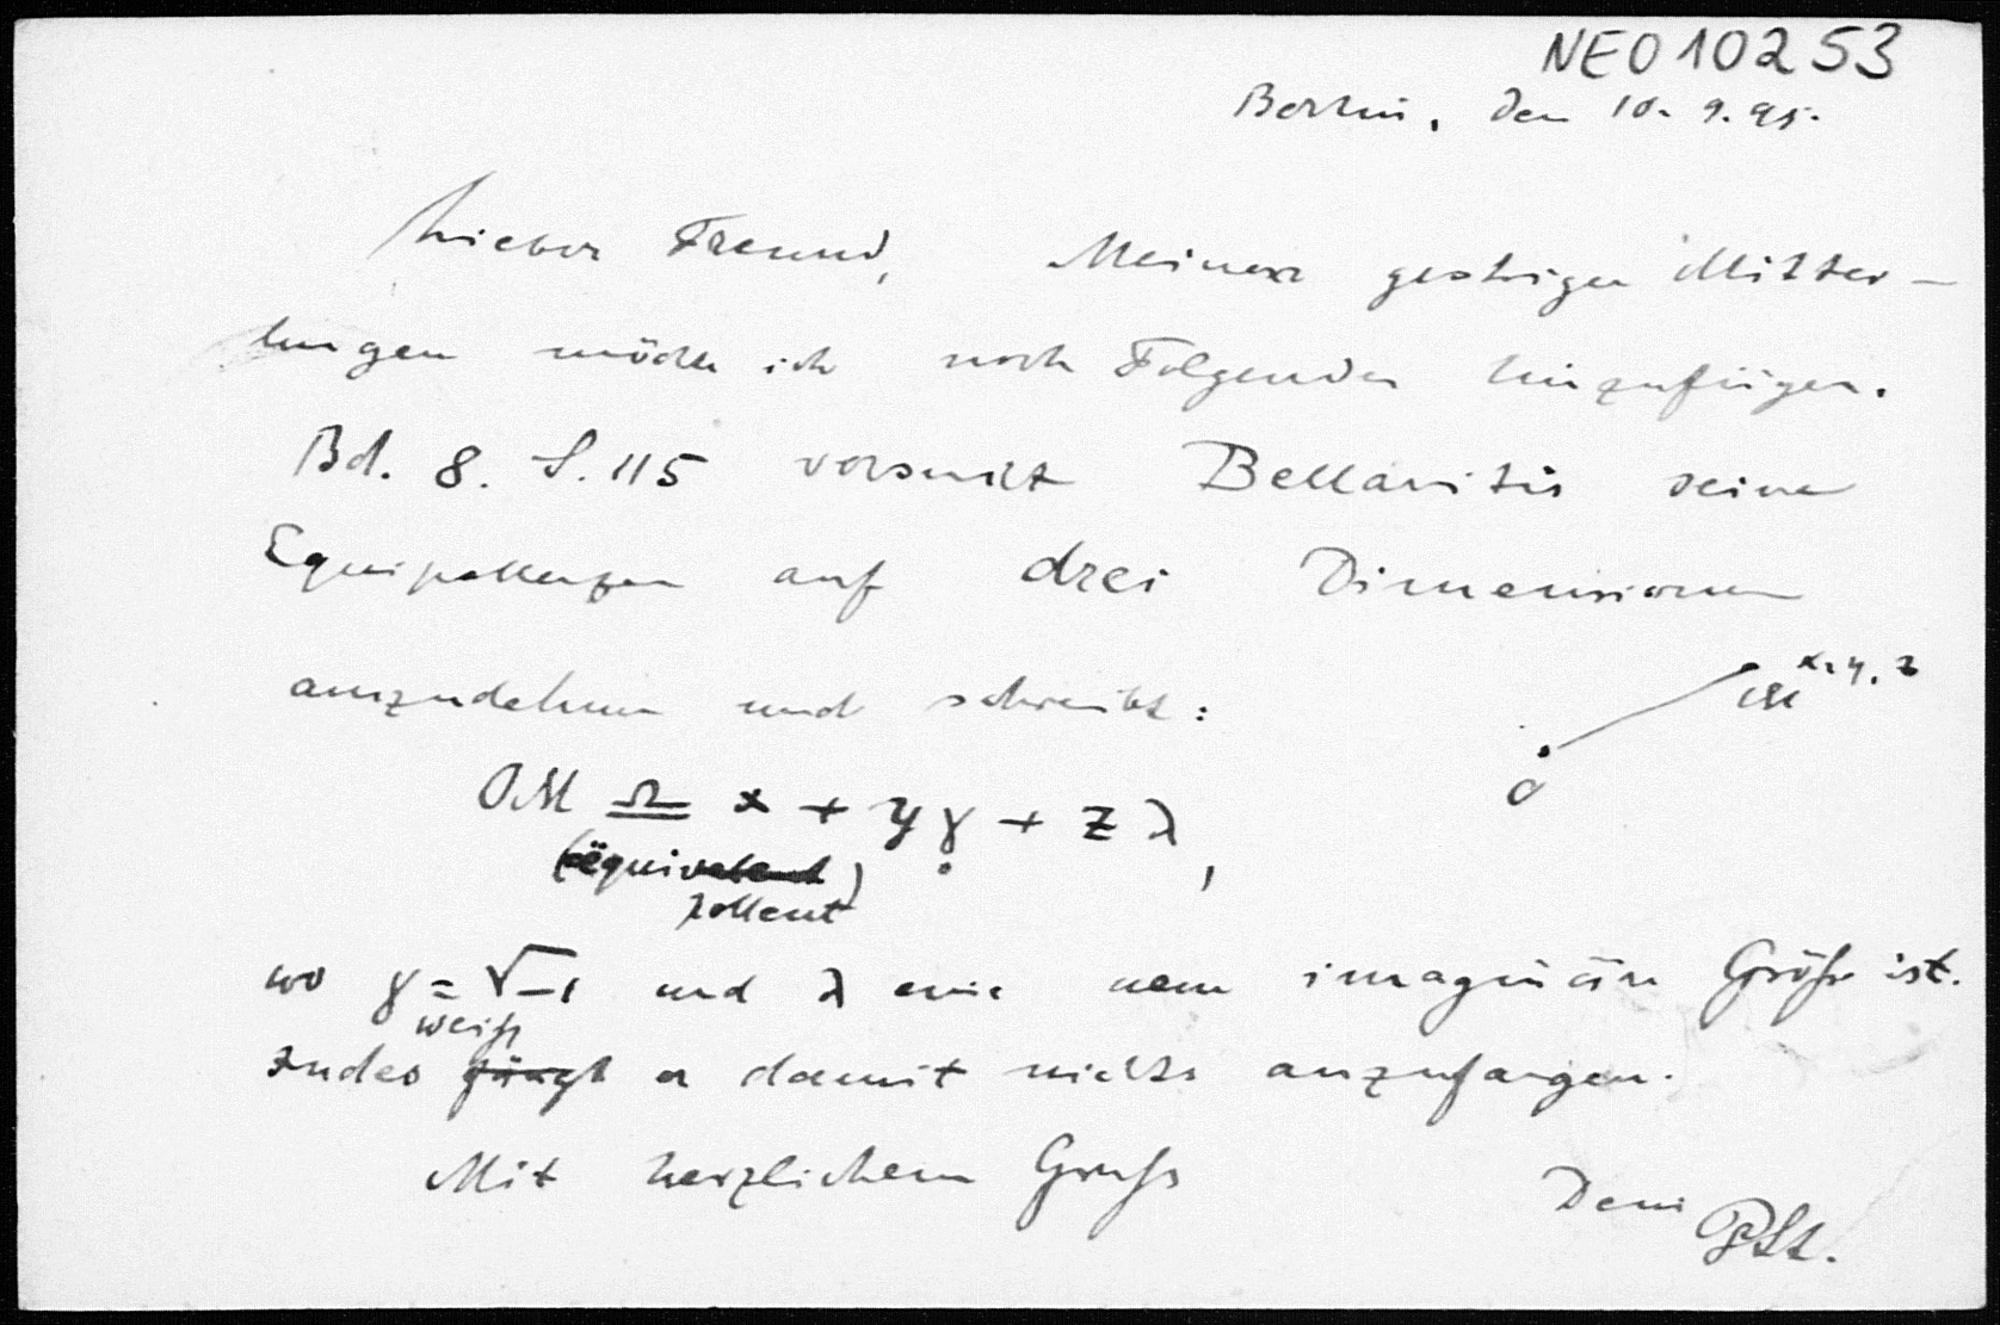 NE010253
Berlin, den 10. 9. 95.
Lieber Freund, Meinen gestrigen Mittei-
lungen möchte ich noch Folgendes hinzufügen.
Bd. 8. S. 115 versucht Bellavitis seine
Equipollenzen auf drei Dimensionen
auszudehnen und schreibt:
x, y, z
M
O
OM ≏ x + y γ + z λ,
(äqui
pollent)
wo γ = √-1 und λ eine neue imaginäre Größe ist.
weiß
Indes fängt er damit nichts anzufangen.
Mit herzlichem Gruß
Dein PSt.